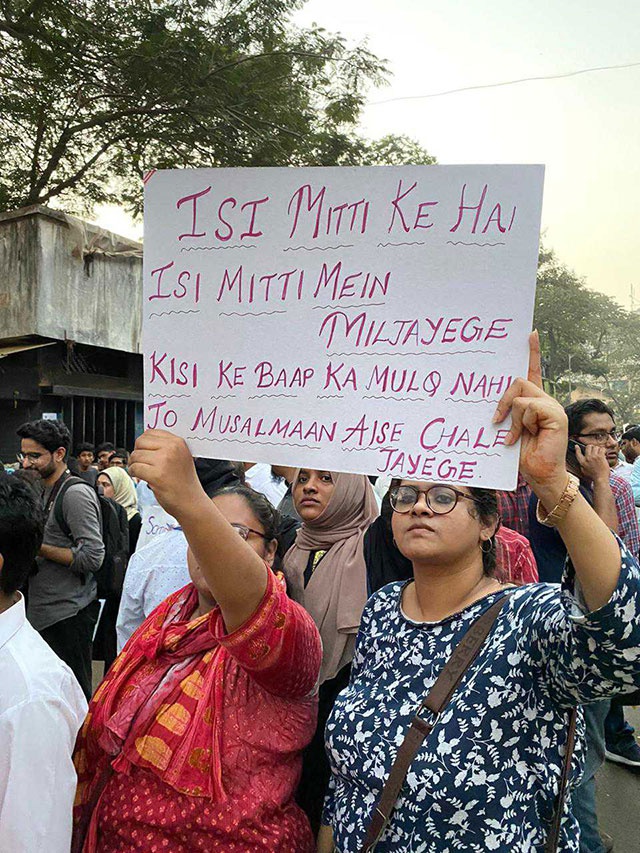 ISI MITTI KE HAI
ISI MITTI MEIN
MILJAYEGE
KISI KE BAAP KA MULQ NAHI
JO MUSALMAAN AISE CHALE
JAYEGE.